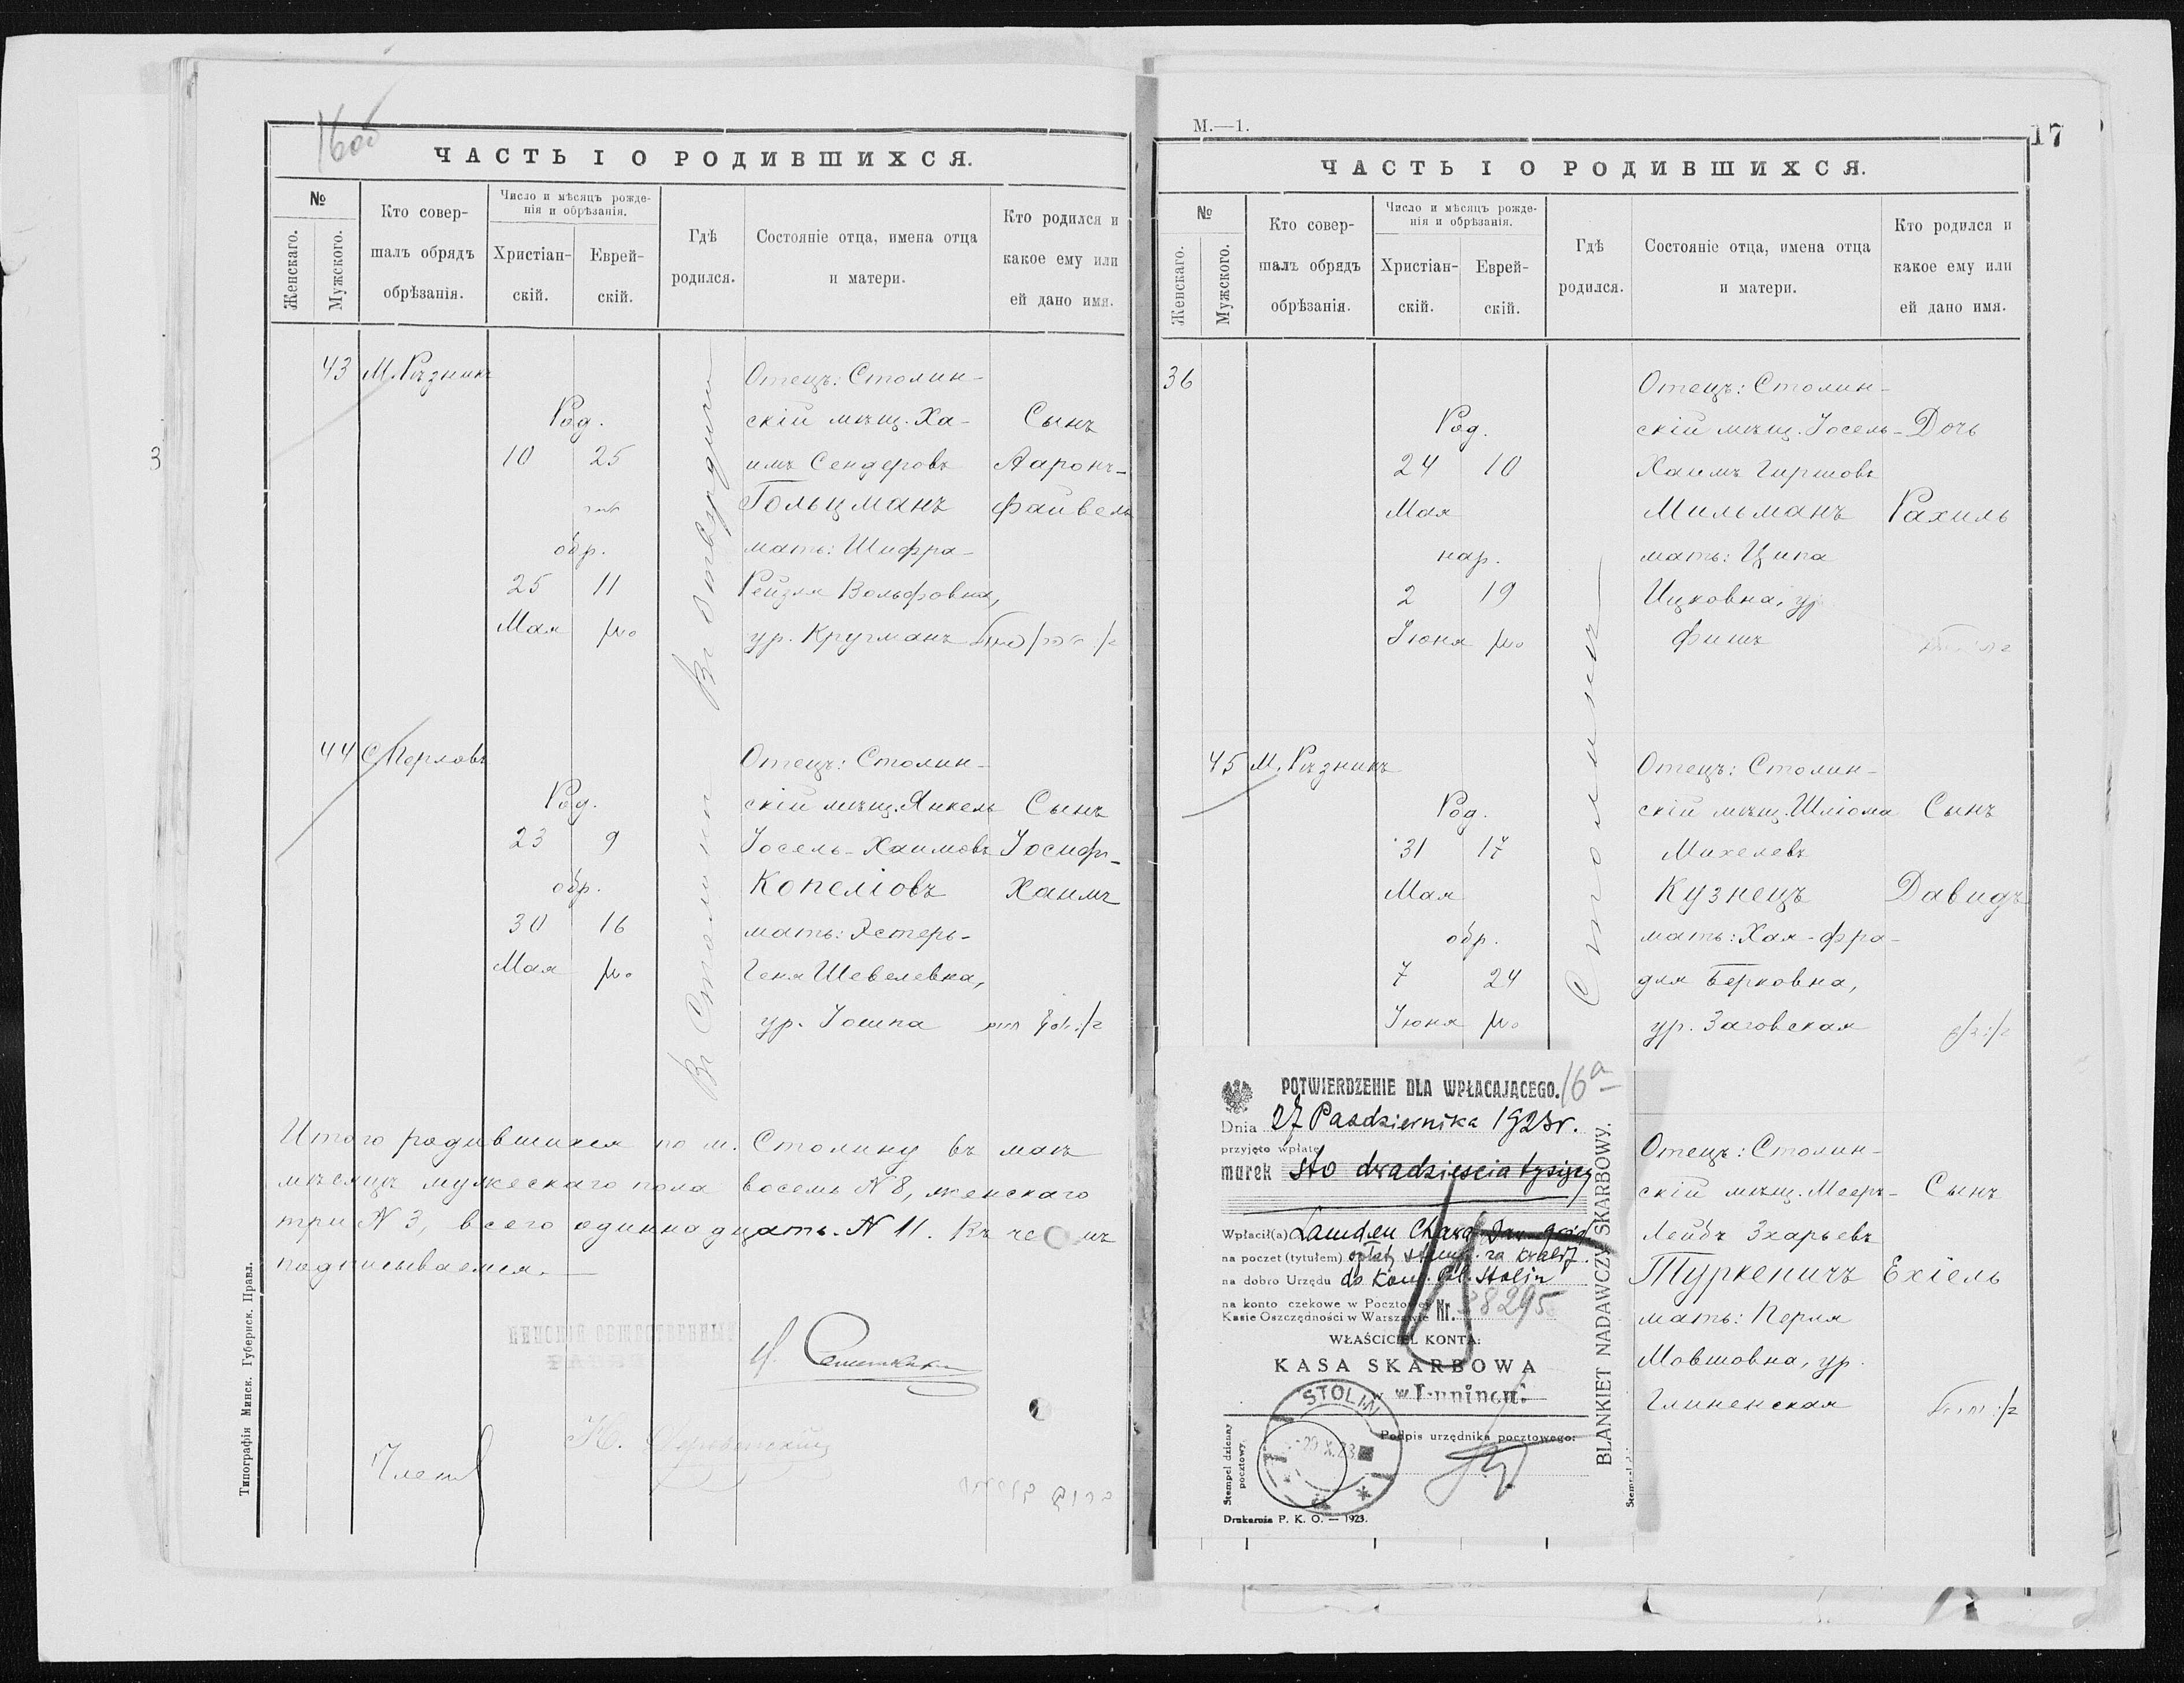 16об
ЧАСТЬ I О РОДИВШИХСЯ.
№
Женскаго.
Мужского.
Кто совер-
шалъ обрядъ
обрѣзанія.
Число и мѣсяцъ рожде-
нія и обрѣзанія.
Христіан-
скій.
Еврей-
скій.
Гдѣ
родился.
Состояніе отца, имена отца
и матери.
Кто родился и
какое ему или
ей дано имя.
43 М. Рѣзникъ
Род.
10 25
обр.
25 11
Мая
Отецъ: Столин-
скій мѣщ. Ха-
имъ Сендеровъ
Гольцманъ
мать: Шифра-
Рейзля Вольфовна,
ур. Кругманъ
Сынъ
Ааронъ-
Файвель
44 С. Перловъ
Род.
23 9
обр.
30 16
Мая
Въ Столинѣ
Отецъ: Столин-
скій мѣщ. Янкель
Іосель-Хаимовъ
Копеліовъ
мать: Эстеръ-
Геня Шевелевна,
ур. Іошпа
Сынъ
Іосифъ-
Хаимъ
Итого родившихся по м. Столину въ маѣ
мѣсяцѣ мужескаго пола восемь N 8, женскаго
три N 3, всего одиннадцать. N 11. Въ чемъ
подписываемся.
ПИНСКІЙ ОБЩЕСТВЕННЫЙ
РАВВИНЪ
Член
Типографія Минск. Губернск. Правл.
3
М.—1.
17
ЧАСТЬ I О РОДИВШИХСЯ.
№
Женскаго.
Мужского.
Кто совер-
шалъ обрядъ
обрѣзанія.
Число и мѣсяцъ рожде-
нія и обрѣзанія.
Христіан-
скій.
Еврей-
скій.
Гдѣ
родился.
Состояніе отца, имена отца
и матери.
Кто родился и
какое ему или
ей дано имя.
36
Род.
24 10
Мая
нар.
2 19
Іюня
Отецъ: Столин-
скій мѣщ. Іосель-
Хаимъ Гиршовъ
Мильманъ
мать: Ципа
Ицковна, ур.
Фишъ
Дочь
Рахиль
45 М. Рѣзникъ
Род.
31 17
Мая
обр.
7 24
Іюня
Столинѣ
Отецъ: Столин-
скій мѣщ. Шліома
Михелевъ
Кузнецъ
мать: Хая-Фра-
для Берковна,
ур. Заговская
Сынъ
Давидъ
Отецъ: Столин-
скій мѣщ. Мееръ-
Лейбъ Зхарьевъ
Туркеничъ
мать: Перля
Мовшовна, ур.
Глиненская
Сынъ
Ехіель
POTWIERDZENIE DLA WPŁACAJĄCEGO.
16a
Dnia 27 Pazdziernika 1923r.
przyjęto wpłatę
marek sto dwadzieścia tysięcy
Wpłacił(a) Lamden Chawa
na poczet (tytułem) opłaty stempl. za
na dobro Urzędu do Kom. Pol. Stolin
na konto czekowe w Pocztowej
Kasie Oszczędności w Warszawie Nr. 38295
WŁAŚCICIEL KONTA:
KASA SKARBOWA
w Łunińcu.
STOLIN
Podpis urzędnika pocztowego:
Stempel dzienny
pocztowy.
Drukarnia P. K. O. — 1923.
BLANKIET NADAWCZY SKARBOWY.